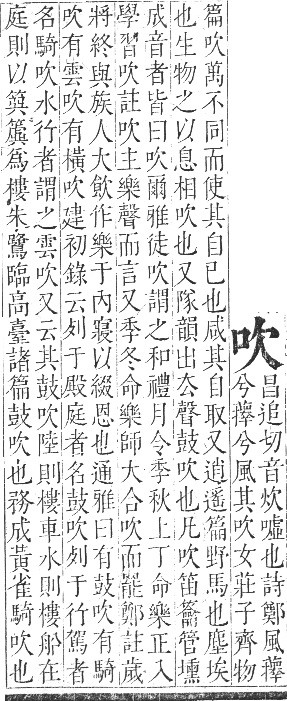 吹
昌追切音炊噓也詩鄭風蘀
兮蘀兮風其吹女莊子齊物
篇吹萬不同而使其自已也咸其自取又逍遙篇野馬也塵埃
也生物之以息相吹也又隊韻出去聲鼓吹也凡吹笛籥管壎
成音者皆曰吹爾雅徒吹謂之和禮月令季秋上丁命樂正入
學習吹註吹主樂聲而言又季冬命樂師大合吹而罷鄭註歲
將終與族人大飲作樂于內寢以綴恩也通雅曰有鼓吹有騎
吹有雲吹有橫吹建初錄云列于殿庭者名鼓吹列于行駕者
名騎吹水行者謂之雲吹又云其鼓吹陸則樓車水則樓船在
庭則以簨簴為樓朱鷺臨高臺諸篇鼓吹也務成黃雀騎吹也